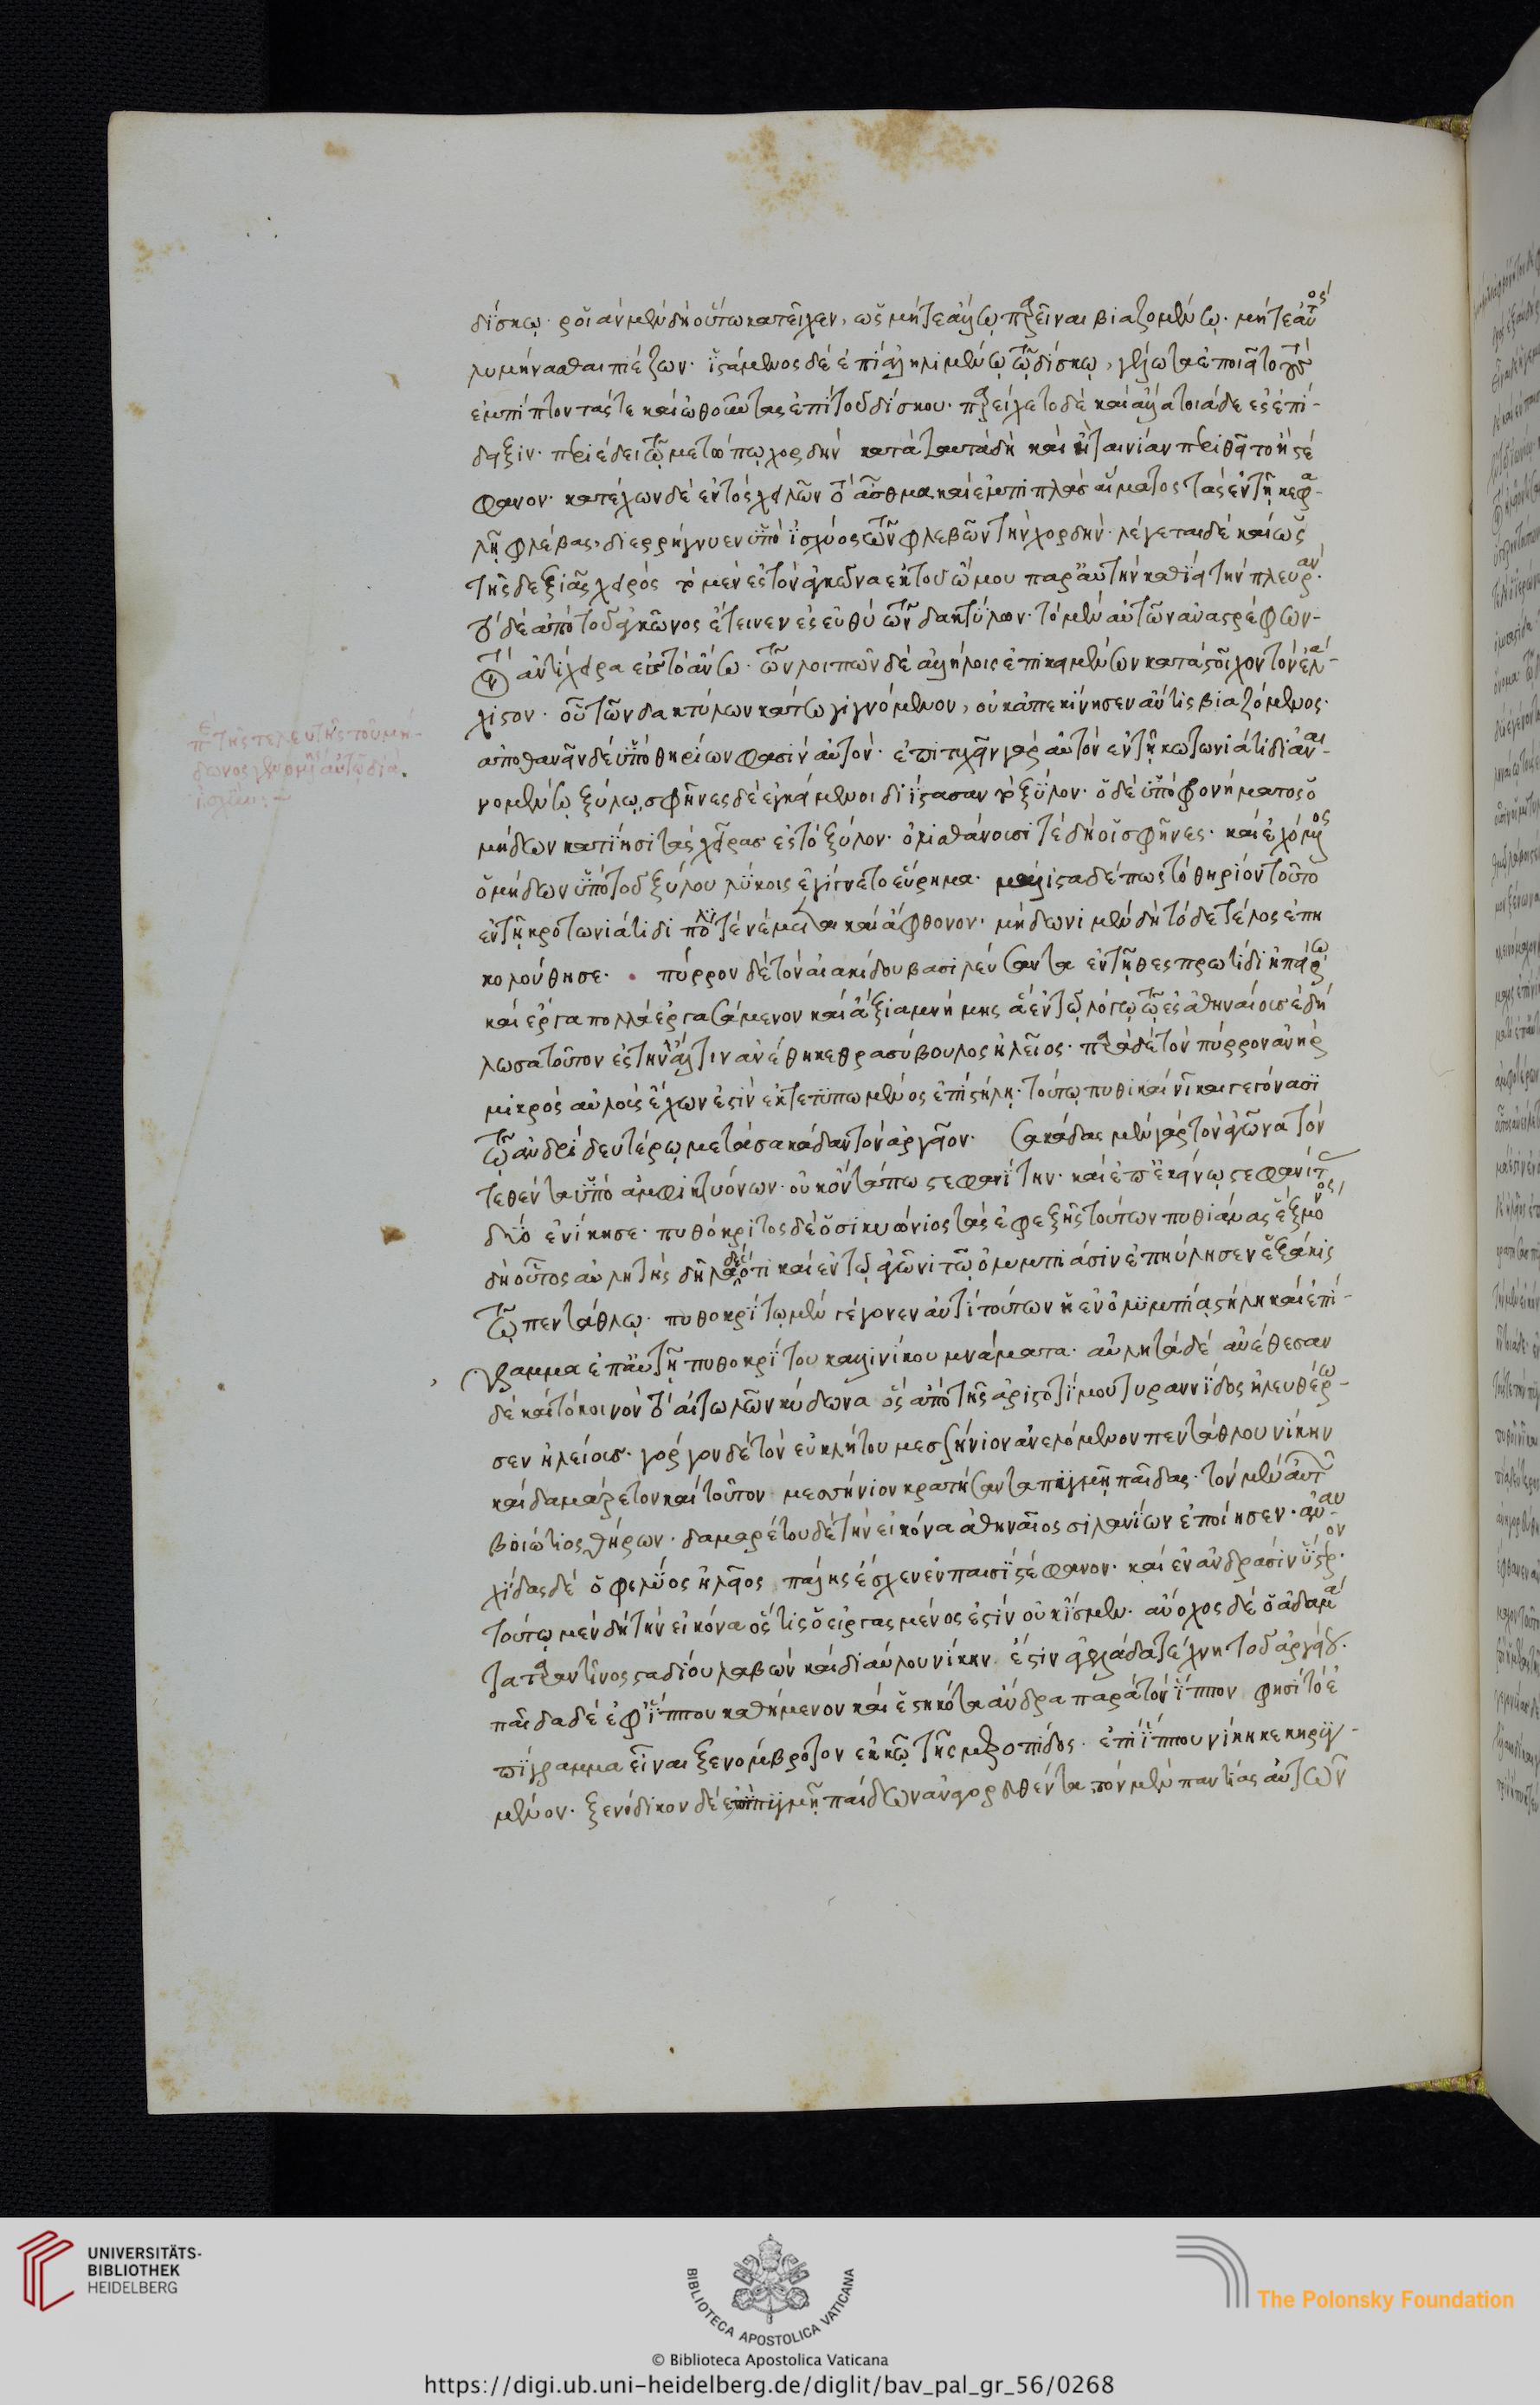 δίσκῳ· ροῒ ὰν μὲν δὴ οὕτω κατεῖχεν, ὡς μήτε ἄλλῳ παρεῖναι βιαζομένῳ· μήτε αὐτὸς
λυμήνασθαι πιέζων· ἱστάμενος δὲ ἐπὶ ἀληλιμένῳ τῷ δίσκῳ, γέλωτα ἐποιεῖτο τοὺς
ἐμπίπτοντάς τε καὶ ὠθοῦντας ἐπὶ τοῦ δίσκου· παρείχετο δὲ καὶ ἄλλα τοιάδε ἐς ἐπί-
δειξιν· περιέδει τῷ μετώπῳ χορδὴν κατὰ ταυτὰ δὴ καὶ εἰ ταινίαν περιθεῖτο ἢ στέ
φανον· κατέχων δὲ ἐντὸς χειλῶν τὸ ἆσθμα καὶ ἐμπιπλὰς αἵματος τὰς ἐν τῇ κεφα-
λῇ φλέβας, διερρήγνυεν ὑπὸ ἰσχύος τῶν φλεβῶν τὴν χορδήν· λέγεται δὲ καὶ ὡς
τῆς δεξιᾶς χειρὸς τὸ μὲν ἐς τὸν ἀγκῶνα ἐκ τοῦ ὤμου παρ' αὐτὴν καθίει τὴν πλευράν·
τὸ δὲ ἀπὸ τοῦ ἀγκῶνος ἔτεινεν ἐς εὐθὺ τῶν δακτύλων· τὸ μὲν αὐτῶν ἀναστρέφων-
τὸν ἀντίχειρα εἰς τὸ ἄνω· τῶν λοιπῶν δὲ ἀλλήλοις ἐπικειμένων κατὰ στοῖχον τὸν ἐλά-
χιστον· οὖν τῶν δακτύλων κάτω γιγνόμενον, οὐκ ἀπεκίνησεν ἄν τις βιαζόμενος·
ἀποθανεῖν δὲ ὑπὸ θηρίων φασὶν αὐτόν· ἐπιτυχεῖν γὰρ αὐτὸν ἐν τῇ κρωτωνιάτιδι ἀυαι-
νομένῳ ξύλῳ, σφῆνες δὲ ἐγκείμενοι διΐστασαν τὸ ξύλον· ὁ δὲ ὑπὸ φρονήματος ὁ
μήδων καθίησι τὰς χεῖρας ἐς τὸ ξύλον· ὀλισθάνουσί τε δὴ οἱ σφῆνες· καὶ ἐχόμενος
ὁ μήδων ὑπὸ τοῦ ξύλου λύκοις ἐγίγνετο εὕρημα· μάλιστα δέ πως τὸ θηρίον τοῦτο
ἐν τῇ κροτωνιάτιδι πολύ τε νέμεται καὶ ἄφθονον· μήδωνι μὲν δὴ τόδε τέλος ἐπη
κολούθησε· πύρρον δὲ τὸν αἰακίδου βασιλεύσαντα ἐν τῇ θεσπρωτίδι ἠπείρω
καὶ ἔργα πολλὰ ἐργασάμενον καὶ ἄξια μνήμης ἃ ἐν τῷ λόγῳ τῷ ἐς ἀθηναίους ἐδή
λωσα τοῦτον ἐς τὴν ἄλτιν ἀνέθηκε θρασύβουλος ἠλεῖος· παρὰ δὲ τὸν πύρρον ἀνὴρ
μικρὸς αὐλοὺς ἔχων ἐστὶν ἐκτετυπωμένος ἐπὶ στήλῃ· τούτῳ πυθικαὶ νῖκαι γεγόνασι
τῷ ἀνδρὶ δευτέρῳ μετὰ σακάδαν τὸν ἀργεῖον· σακάδας μὲν γὰρ τὸν ἀγῶνα τὸν
τεθέντα ὑπὸ ἀμφικτυόνων· οὐκ ὄντα πω στεφανίτην· καὶ ἐπ' ἐκείνῳ στεφανίτας
δύο ἐνίκησε· πυθόκριτος δὲ ὁ σικυώνιος τὰς ἐφεξῆς τούτων πυθιάδας ἓξ μόνος
δὴ οὗτος αὐλητής δῆλα δὲ ὅτι καὶ ἐν τῷ ἀγῶνι τῷ ὀλυμπιάσιν ἐπηύλησεν ἑξάκις
τῷ πεντάθλῳ· πυθοκρίτῳ μὲν γέγονεν ἀντὶ τούτων ἡ ἐν ὀλυμπίᾳ στήλη καὶ ἐπί-
γραμμα ἐπ' αὐτῇ πυθοκρίτου καλλινίκου μνάματα· αὐλητὰ δὲ ἀνέθεσαν
δὲ καὶ τὸ κοινὸν τὸ αἰτωλῶν κύδωνα ὃς ἀπὸ τῆς ἀριστοτίμου τυραννίδος ἠλευθέρω-
σεν ἠλείους· γόργον δὲ τὸν εὐκλήτου μεσσήνιον ἀνελόμενον πεντάθλου νίκην
καὶ δαμάρετον καὶ τοῦτον μεσσήνιον κρατήσαντα πυγμῇ παῖδας· τὸν μὲν αὐτῶν
βοιώτιος θήρων· δαμαρέτου δὲ τὴν εἰκόνα ἀθηναῖος σιλανίων ἐποίησεν· ἀναυ-
χίδας δὲ ὁ φιλύος ἠλεῖος πάλης ἔσχεν ἐν παισὶ στέφανον· καὶ ἐν ἀνδράσιν ὕστερον·
τούτῳ μὲν δὴ τὴν εἰκόνα ὅς τις ὁ εἰργασμένος ἐστὶν οὐκ ἴσμεν· ἄνοχος δὲ ὁ ἀδαμά
τα ταραντῖνος σταδίου λαβὼν καὶ διαύλου νίκην ἐστὶν ἀγελάδα τέχνη τοῦ ἀργείου·
παῖδα δὲ ἐφ' ἵππου καθήμενον καὶ ἑστηκότα ἄνδρα παρὰ τὸν ἵππον φησὶ τὸ ἐ
πίγραμμα εἶναι ξενόμβροτον ἐκ κῶ τῆς μεροπίδος· ἐπὶ ἵππου νίκῃ κεκηρυγ-
μένον· ξενόδικον δὲ ἐπὶ πυγμῇ παίδων ἀναγορευθέντα τὸν μὲν παντίας αὐτῶν
π(ερὶ) τῆς τελευτῆς τοῦ μή-
δωνος γενομένης αὐτῷ διὰ
ἰσχύν
UNIVERSITÄTS-
BIBLIOTHEK
HEIDELBERG
BIBLIOTECA APOSTOLICA VATICANA
The Polonsky Foundation
© Biblioteca Apostolica Vaticana
https://digi.ub.uni-heidelberg.de/diglit/bav_pal_gr_56/0268